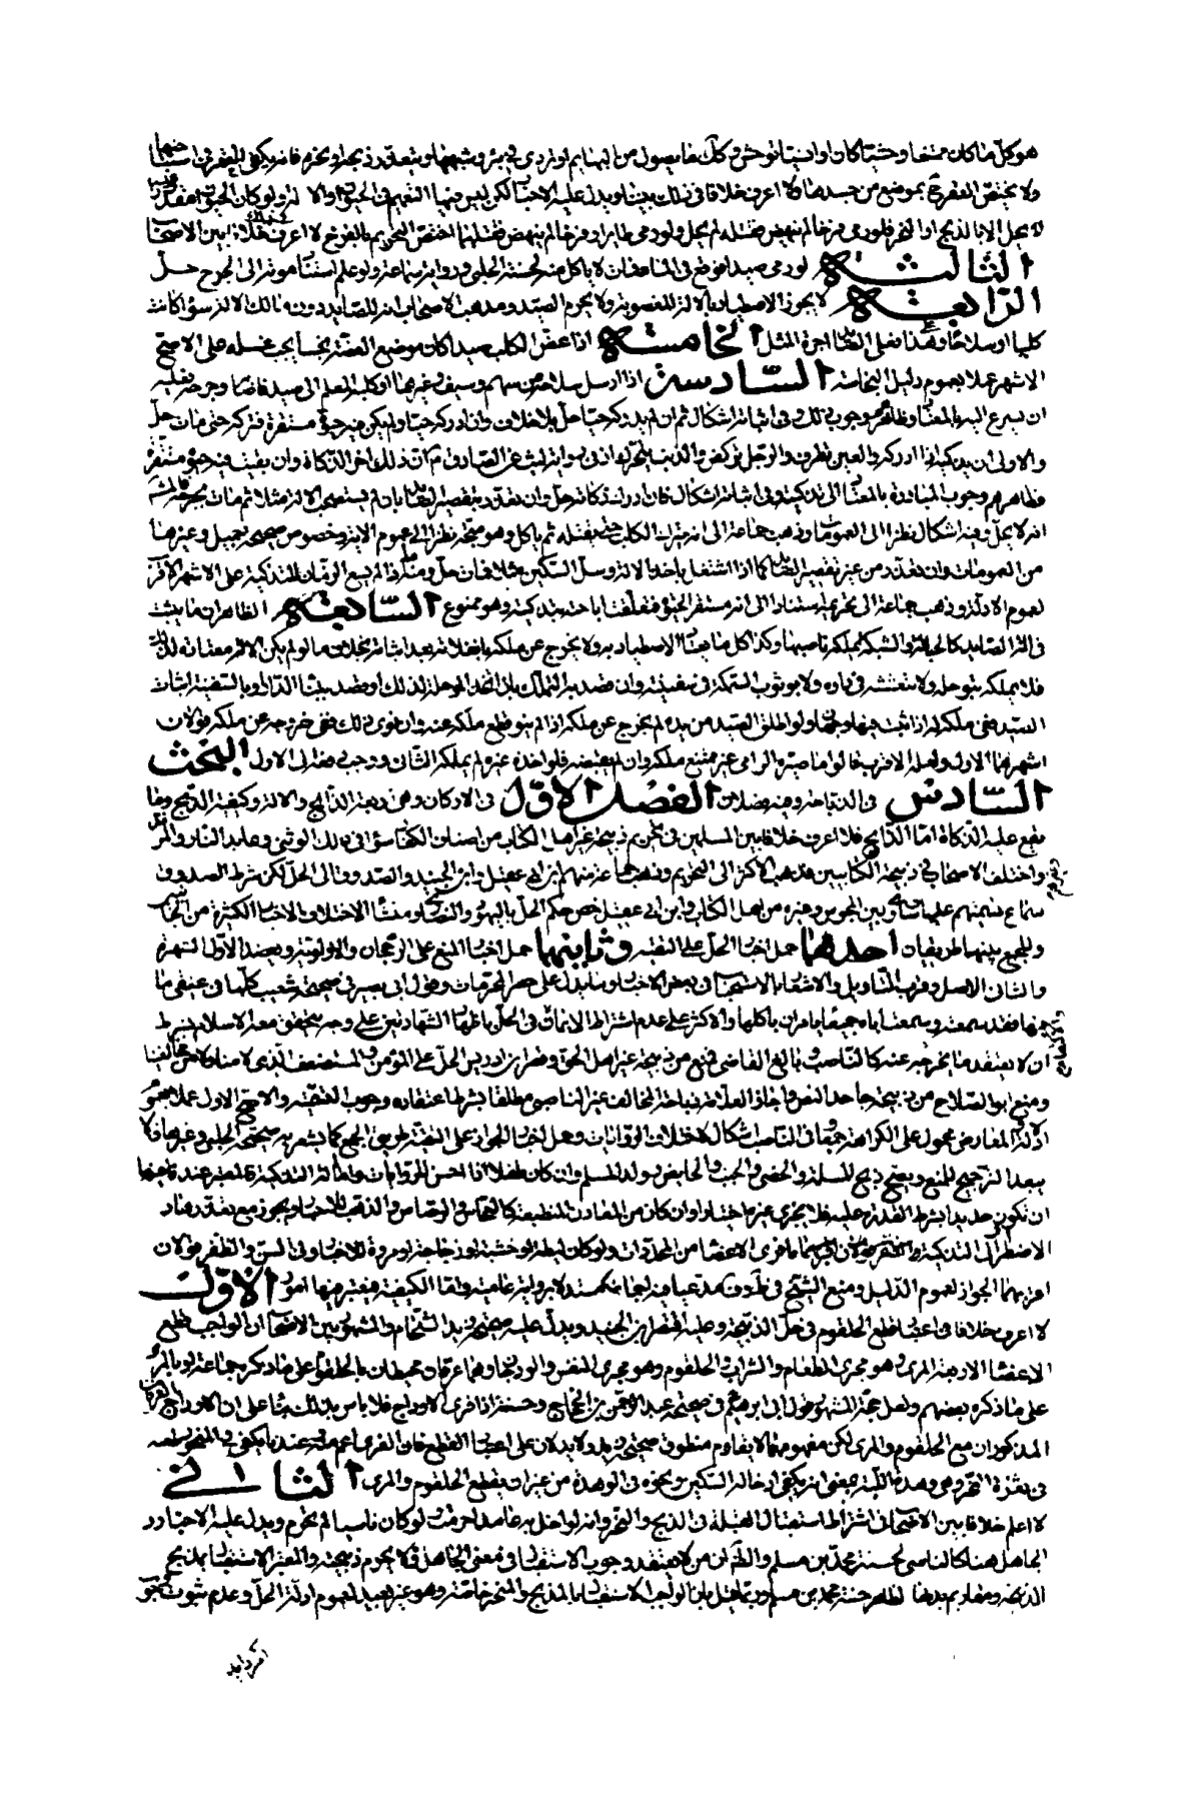 هو كل ما كان ممتنعا وحشيا كان او انسيا توحش وكل ما يصول من البهائم او تردى في بئر وشبهها ويتعذر ذبحه او نحره فانه يكفي العقر في استباحتها
ولا يختص العقر بموضع من جسدها ولا اعرف خلافا في ذلك بيننا ويدل عليه الاخبار لكن ليس فيها التعميم في الحيوان والالة ولو كان الحيوان
لا يحل الا بالذبح او النحر فلو رمى فرخا لم ينهض فقتله لم يحل ولو رمى طائرا وفرخا لم ينهض فقتلهما اختص التحريم بالفرخ لا اعرف خلافا بين الاصحاب
الثالثة لو رمى صيدا فوقع في الماء فمات لا ياكل منه لحسنة الحلبي ورواية سماعة ولو علم استناد موته الى الجرح حل
الرابعة لا يجوز الاصطياد بالالة المغصوبة ولا يحرم الصيد ومذهب الاصحاب انه للصايد دون مالك الالة سواء كانت
كلبا او سلاحا وهذا فعلى الصايد اجرة المثل الخامسة اذا عض الكلب صيدا كان موضع العضة نجسا يجب غسله على الاصح
الاشهر عملا بعموم دليل النجاسة السادسة اذا ارسل سلاحه من سهم وسيف وغيرهما او كلبه المعلم الى صيد فاصابه وجرحه فعليه
ان يسرع اليه بالمعتاد وظاهرهم وجوب ذلك وفي اثباته اشكال ثم ان لم يدركه حيا حل بلا خلاف وان ادركه حيا ولم يكن فيه حيوة مستقرة فتركه حتى مات حل
والاولى ان يذكيه اذا ادركه والعين تطرف والرجل تركض والذنب يتحرك اذ في رواية ليث عن الصادق ع ان ذلك اخر الذكاة وان بقيت فيه حيوة مستقرة
فظاهرهم وجوب المبادرة بالمعتاد الى تذكيته وفي اثباته اشكال فان ادرك ذكاته حل وان تعذر بتقصير الصايد بان لم يستصحب الالة مثلا ثم مات بجرحه
انه لا يحل وفيه اشكال نظرا الى العمومات وذهب جماعة الى انه يترك الكلب حتى يقتله ثم ياكل وهو متجه نظرا الى عموم الاية وخصوص صحيحة جميل وغيرها
من العمومات وان تعذر من غير تقصير الصايد كما اذا اشتغل باخذ الالة وسل السكين مثلا فمات حل ومنه اذا لم يسع الزمان للتذكية على الاشهر الاقرب
لعموم الادلة وذهب جماعة الى تحريمه استنادا الى انه مستقر الحيوة فتعلقت اباحته بتذكيته وهو ممنوع السابعة الظاهر ان ما يثبت
في الة الصايد كالحبالة والشبكة يملكه ناصبها وكذا كل ما يعتاد الاصطياد به ولا يخرج عن ملكه بانفلاته بعد اثباته بخلاف ما لو لم يكن الالة معتادة لذلك
فلا يملكه بتوحله ولا بتعشيشه في داره ولا بوثوب السمكة في سفينته وان قصد به التملك
الصيد ففي ملكه له اذا اثبت فيها وجهان ولو اطلق الصيد من يده لم يخرج عن ملكه اذا لم ينو قطع ملكه عنه وان نوى ذلك ففي خروجه عن ملكه قولان
اشهرهما الاول ولعله الاقرب قالوا ما صيره الرامي غير ممتنع ملكه وان لم يقبضه فلو اخذه غيره لم يملكه الثاني ووجب دفعه الى الاول البحث
السادس في الذباحة وفيه فصلان الفصل الاول في الاركان وهي اربعة الذابح والالة وكيفية الذبح وما
يقع عليه الذكاة اما الذابح فلا اعرف خلافا بين المسلمين في تحريم ذبيحة غير اهل الكتاب من اصناف الكفار سواء في ذلك الوثني وعابد النار والمرتد
واختلف الاصحاب في ذبيحة الكتابيين فذهب الاكثر الى التحريم وذهب جماعة منهم ابن ابي عقيل وابن الجنيد والصدوق الى الحل لكن شرط الصدوق
سماع تسميتهم عليها وساوى بين المجوس وغيره من اهل الكتاب وابن ابي عقيل خص حكم الحل باليهود والنصارى ومنشا الاختلاف الاخبار الكثيرة من الجانبين
والجمع بينها طريقان احدهما حمل اخبار الحل على التقية وثانيهما حمل اخبار المنع على الرجحان والاولوية ويعضد الاول الشهرة
والثاني الاصل وقرب التاويل والاشعار بالاستحباب في بعض الاخبار وما يدل على حصر المحرمات وقول ابي بصير في صحيحة شعيب كلها في عنقي ما
فيها فقد سمعته وسمعت اباه جميعا يامران باكلها والاكثر على عدم اشتراط الايمان في الحل باظهار الشهادتين على وجه يتحقق معه الاسلام بشرط
ان لا يعتقد ما يخرجه عنه كالناصب وبالغ القاضي فمنع من ذبيحة غير اهل الحق وقصر ابن ادريس الحل على المؤمن والمستضعف الذي لا منا ولا من مخالفينا
ومنع ابو الصلاح من ذبيحة جاحد النص واجاز العلامة ذباحة المخالف غير الناصبي مطلقا بشرط اعتقاده وجوب التسمية والاصح الاول عملا بعموم
الادلة والمعارض محمول على الكراهة جمعا وفي الناصب اشكال لاختلاف الروايات وحمل اخبار الجواز على التقية طريق الجمع كما يشعر به صحيحة الحلبي وغيرها
يبعد الترجيح للمنع ويصح ذبح المسلمة والخصي والجنب والحائض وولد المسلم وان كان طفلا اذا احسن للروايات واما الة التذكية فالمعتبر عندنا فيها
ان تكون حديدا بشرط القدرة عليه فلا يجزي غيره اختيارا وان كان من المعادن المنطبعة كالنحاس والرصاص والذهب للاخبار ويجوز مع تعذرها و
الاضطرار الى التذكية بما فرى الاعضاء من المحددات ولو كان ليطة او خشبة او زجاجة او مروة للاخبار وفي السن والظفر قولان
اقربهما الجواز لعموم الدليل ومنع الشيخ في ف مدعيا فيه اجماعا مستندا برواية عامية واما الكيفية فيعتبر فيها امور الاول
لا اعرف خلافا في اعتبار قطع الحلقوم في حل الذبيحة وعليه اقتصر ابن الجنيد ويدل عليه صحيحة زيد الشحام والمشهور بين الاصحاب ان الواجب قطع
الاعضاء الاربعة المريء وهو مجرى الطعام والشراب والحلقوم وهو مجرى النفس والودجان وهما عرقان محيطان بالحلقوم على ما ذكره جماعة او بالمريء
على ما ذكره بعضهم ولعل حجة المشهور قول ابي ابراهيم ع في صحيحة عبد الرحمن بن الحجاج وحسنته اذا فرى الاوداج فلا باس بذلك بناء على ان الاوداج الاربعة
المذكوران مع الحلقوم والمري لكن مفهومهما لا يقاوم منطوق صحيحة زيد ولا يدلان على اعتبار القطع فان الفري اعم منه عندنا يكفي في المنحور طعنه
في ثغرة النحر وهي وهدة اللبة بمعنى انه يكفي ادخال السكين ونحوه في الوهدة من غير ان يقطع الحلقوم والمري الثاني
لا اعلم خلافا بين الاصحاب في اشتراط استقبال القبلة في الذبح والنحر وانه لو اخل به عامدا حرمت ولو كان ناسيا لم يحرم ويدل عليه الاخبار و
الجاهل هنا كالناسي لحسنة محمد بن مسلم والظ ان من لا يعتقد وجوب الاستقبال في معنى الجاهل فلا يحرم ذبيحته والمعتبر الاستقبال بمذبح
الذبيحة ومقاديم بدنها لظاهر حسنة محمد بن مسلم وربما قيل بان الواجب الاستقبال بالمذبح والمنحر خاصة وهو غير بعيد لعموم ادلة الحل وعدم ثبوت وجوب